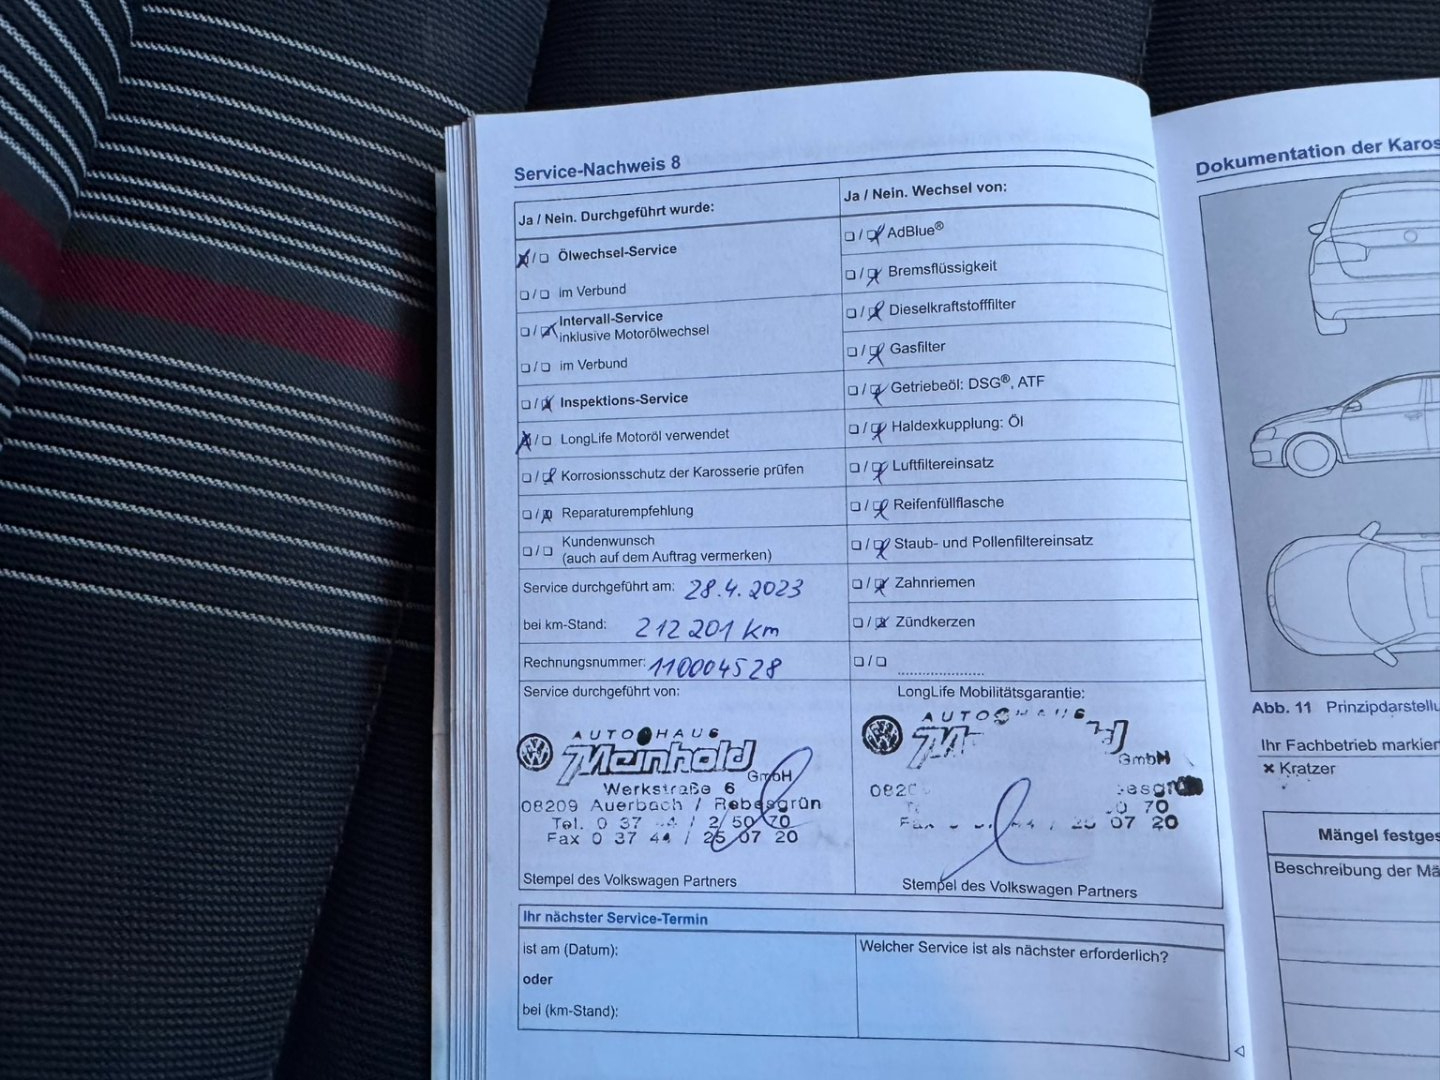 Service-Nachweis 8
Ja / Nein. Durchgeführt wurde:
☒/☐ Ölwechsel-Service
☐/☐ im Verbund
☐/☒ Intervall-Service
inklusive Motorölwechsel
☐/☐ im Verbund
☐/☒ Inspektions-Service
☒/☐ LongLife Motoröl verwendet
☐/☒ Korrosionsschutz der Karosserie prüfen
☐/☒ Reparaturempfehlung
☐/☐ Kundenwunsch
(auch auf dem Auftrag vermerken)
Service durchgeführt am: 28.4.2023
bei km-Stand: 212 201 km
Rechnungsnummer: 110004528
Service durchgeführt von:
AUTOHAUS
Meinhold
GmbH
Werkstraße 6
08209 Auerbach / Rebesgrün
Tel. 0 37 44 / 2 50 70
Fax 0 37 44 / 25 07 20
Stempel des Volkswagen Partners
Ja / Nein. Wechsel von:
☐/☒ AdBlue®
☐/☒ Bremsflüssigkeit
☐/☒ Dieselkraftstofffilter
☐/☒ Gasfilter
☐/☒ Getriebeöl: DSG®, ATF
☐/☒ Haldexkupplung: Öl
☐/☒ Luftfiltereinsatz
☐/☒ Reifenfüllflasche
☐/☒ Staub- und Pollenfiltereinsatz
☐/☒ Zahnriemen
☐/☒ Zündkerzen
☐/☐ ......................
LongLife Mobilitätsgarantie:
GmbH
0 70
07 20
Stempel des Volkswagen Partners
Ihr nächster Service-Termin
ist am (Datum):
oder
bei (km-Stand):
Welcher Service ist als nächster erforderlich?
Dokumentation der Karos
Abb. 11 Prinzipdarstellu
Ihr Fachbetrieb markier
✖ Kratzer
Mängel festges
Beschreibung der Mä